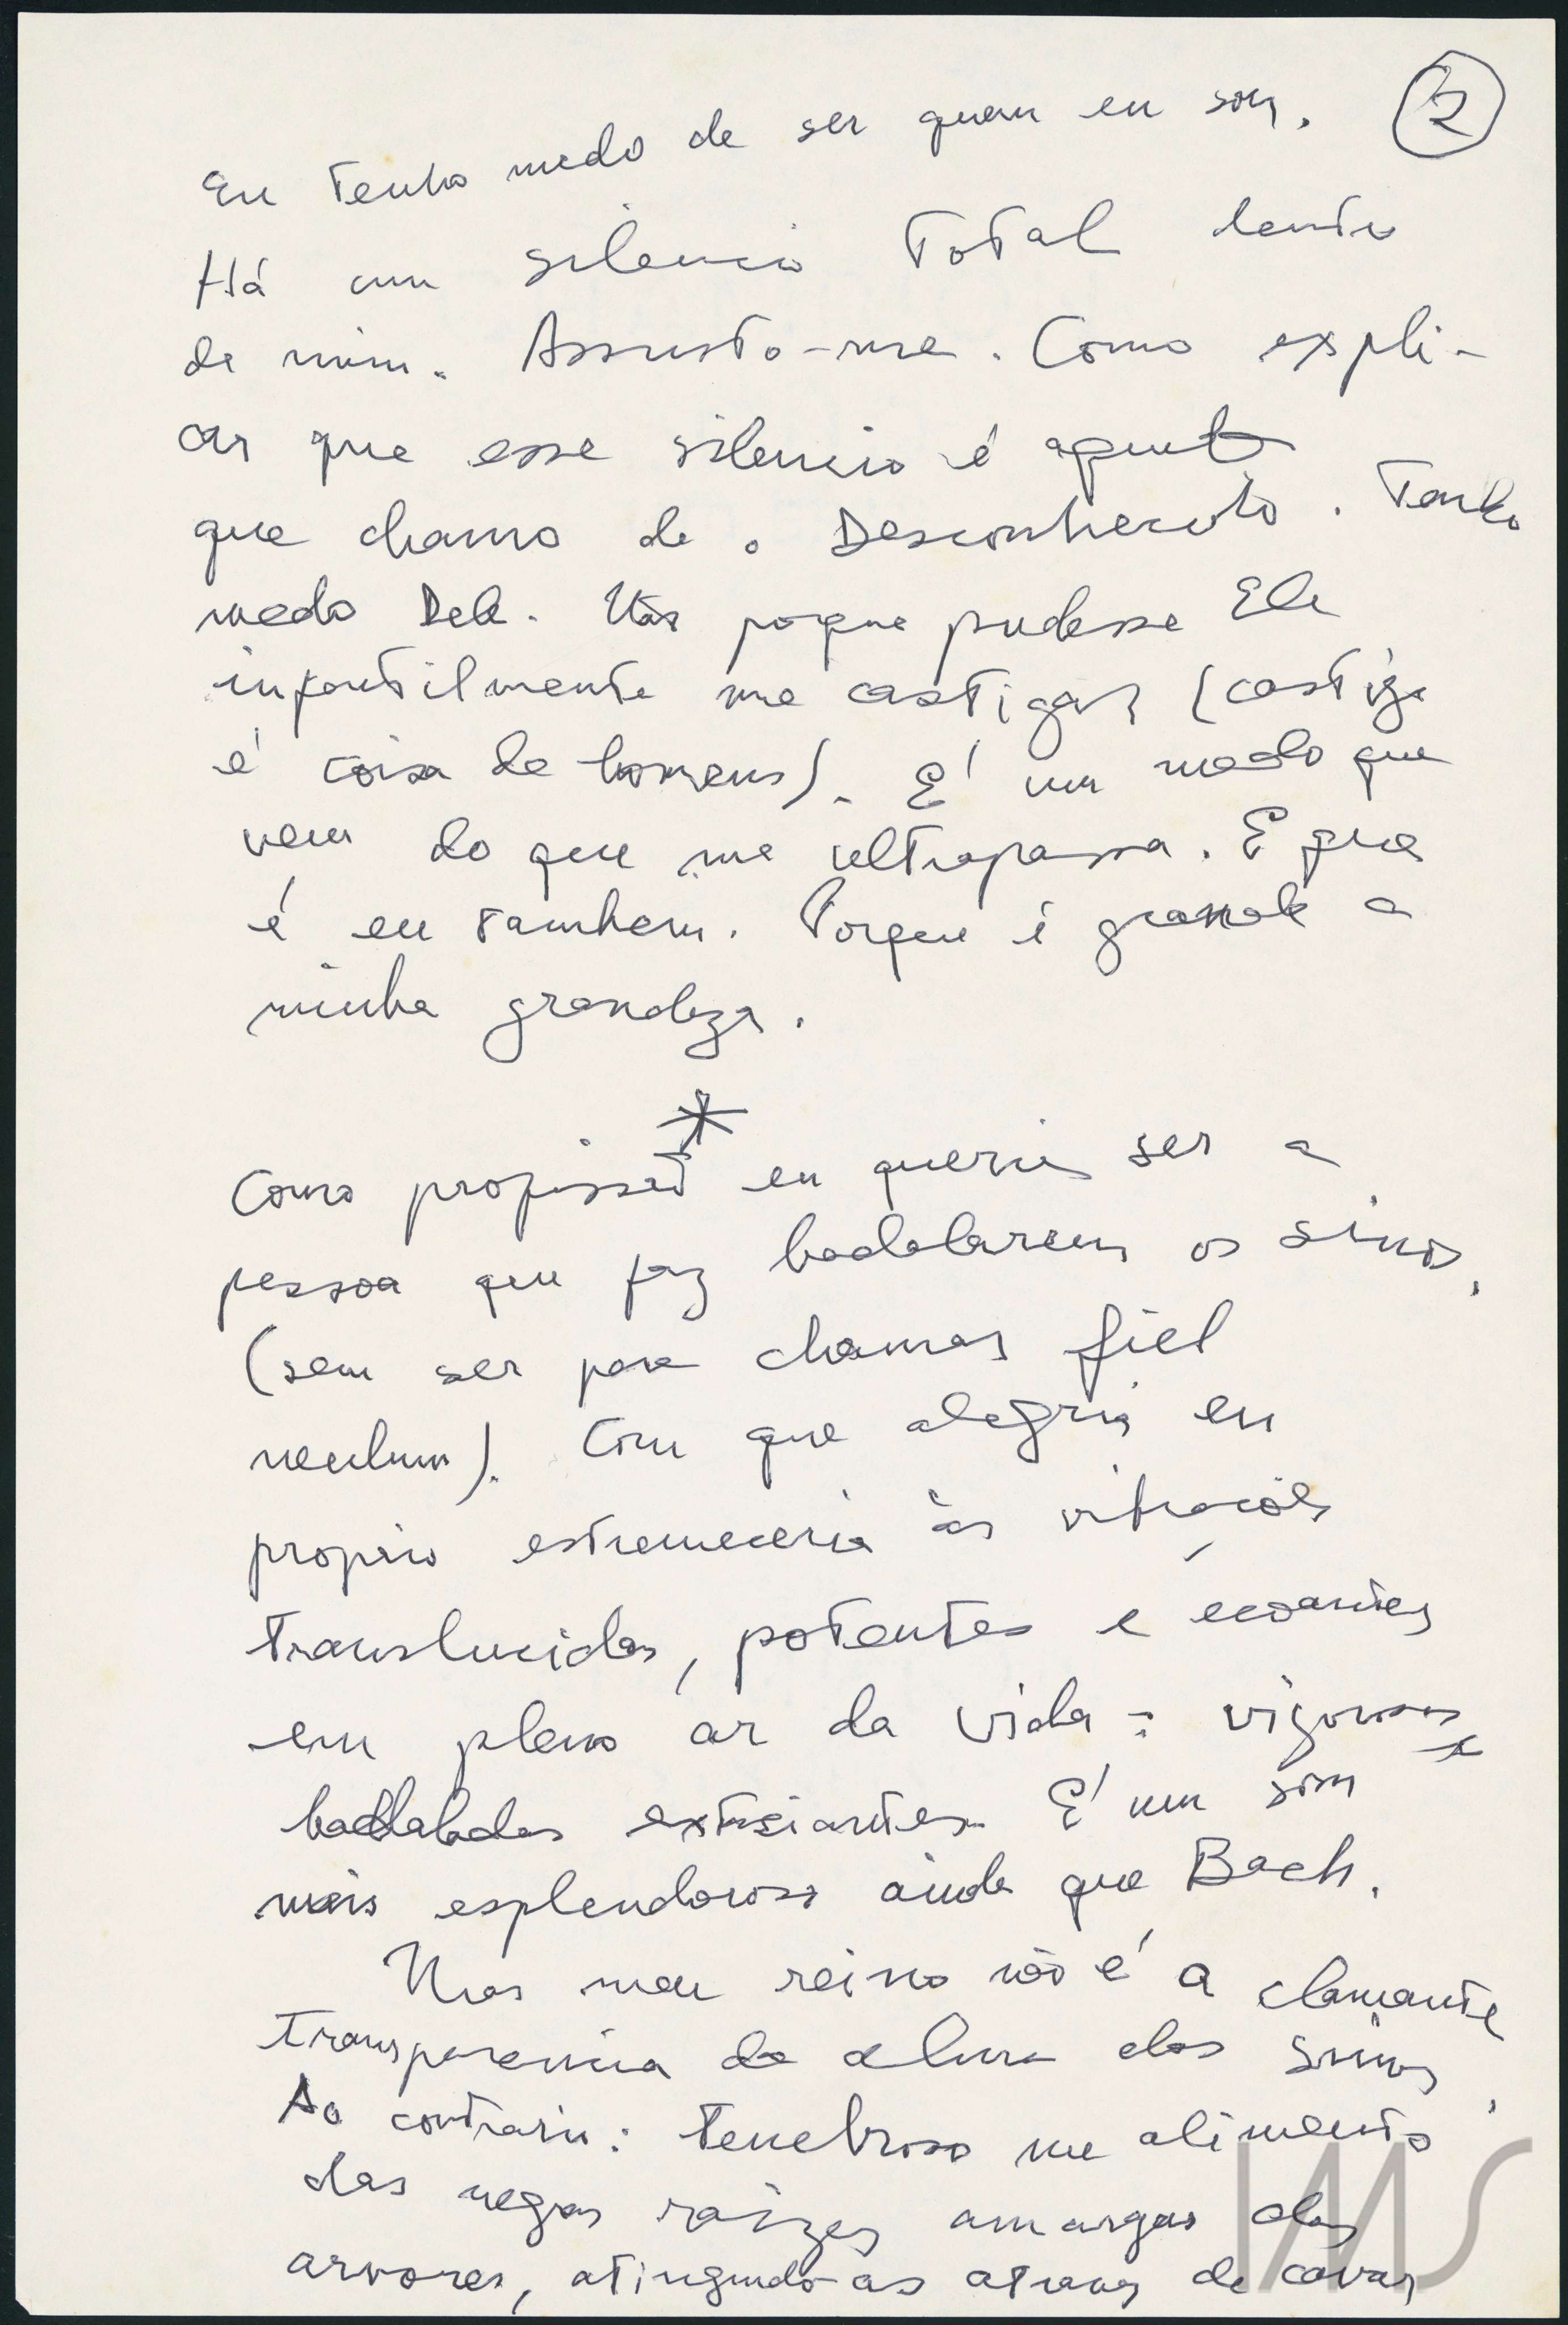 2
Eu tenho medo de ser quem eu sou.
Há um silencio total dentro
de mim. Assusto-me. Como expli-
car que esse silencio é aquele
que chamo de o Desconhecido. Tenho
medo Dele. Não porque pudesse Ele
infantilmente me castigar (castigo
é coisa de homens). É um medo que
vem do que me ultrapassa. E que
é eu tambem. Porque é grande a
minha grandeza.
*
Como profissão eu queria ser a
pessoa que faz badalarem os sinos,
(sem ser para chamar fiel
nenhum). Com que alegria eu
proprio estremeceria às vibrações
translucidas, potentes e ecoantes
em pleno ar da vida: vigorosas e
badaladas extasiantes. É um som
mais esplendoroso ainda que Bach.
Mas meu reino não é a clamante
transparencia da alma dos sinos.
Ao contrario: tenebroso me alimento
das negras raizes amargas das
arvores, atingindo-as atraves de covas
IMS